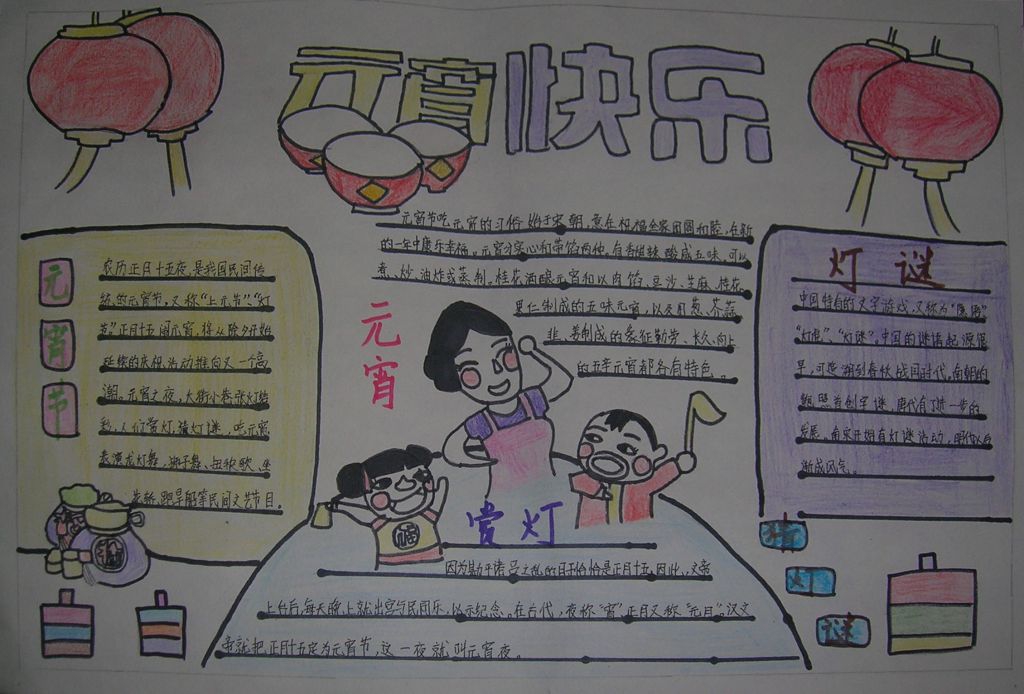 元宵快乐
元宵节
农历正月十五夜,是我国民间传
统的元宵节,又称“上元节”“灯
节”正月十五闹元宵,将从除夕开始
延续的庆祝活动推向又一个高
潮。元宵之夜,大街小巷张灯结
彩,人们赏灯,猜灯谜,吃元宵
表演龙灯舞,狮子舞、扭秧歌、坐
花轿,跑旱船等民间文艺节目。
元宵节吃元宵的习俗始于宋朝,意在祝福全家团圆和睦,在新
的一年中康乐幸福。元宵分实心和带馅两种,有香甜辣酸咸五味,可以
煮、炒、油炸或蒸制。桂花酒酿元宵和以肉馅、豆沙、芝麻、桂花、
果仁制成的五味元宵,以及用葱、芥、蒜、
韭、姜制成的象征勤劳、长久、向上
的五辛元宵都各有特色。
元宵
灯谜
中国特有的文字游戏,又称为“廋语”
“灯虎”、“灯谜”。中国的谜语起源很
早,可追溯到春秋战国时代。南朝的
鲍照首创字谜,唐代有了进一步的
发展。南宋开始有灯谜活动,明代以后
渐成风气。
赏灯
因为勘平诸吕之乱的日子恰恰是正月十五,因此,文帝
上台后,每天晚上就出宫与民同乐,以示纪念。在古代,夜称“宵”正月又称“元月”。汉文
帝就把正月十五定为元宵节,这一夜就叫元宵夜。
猜
灯
谜
福